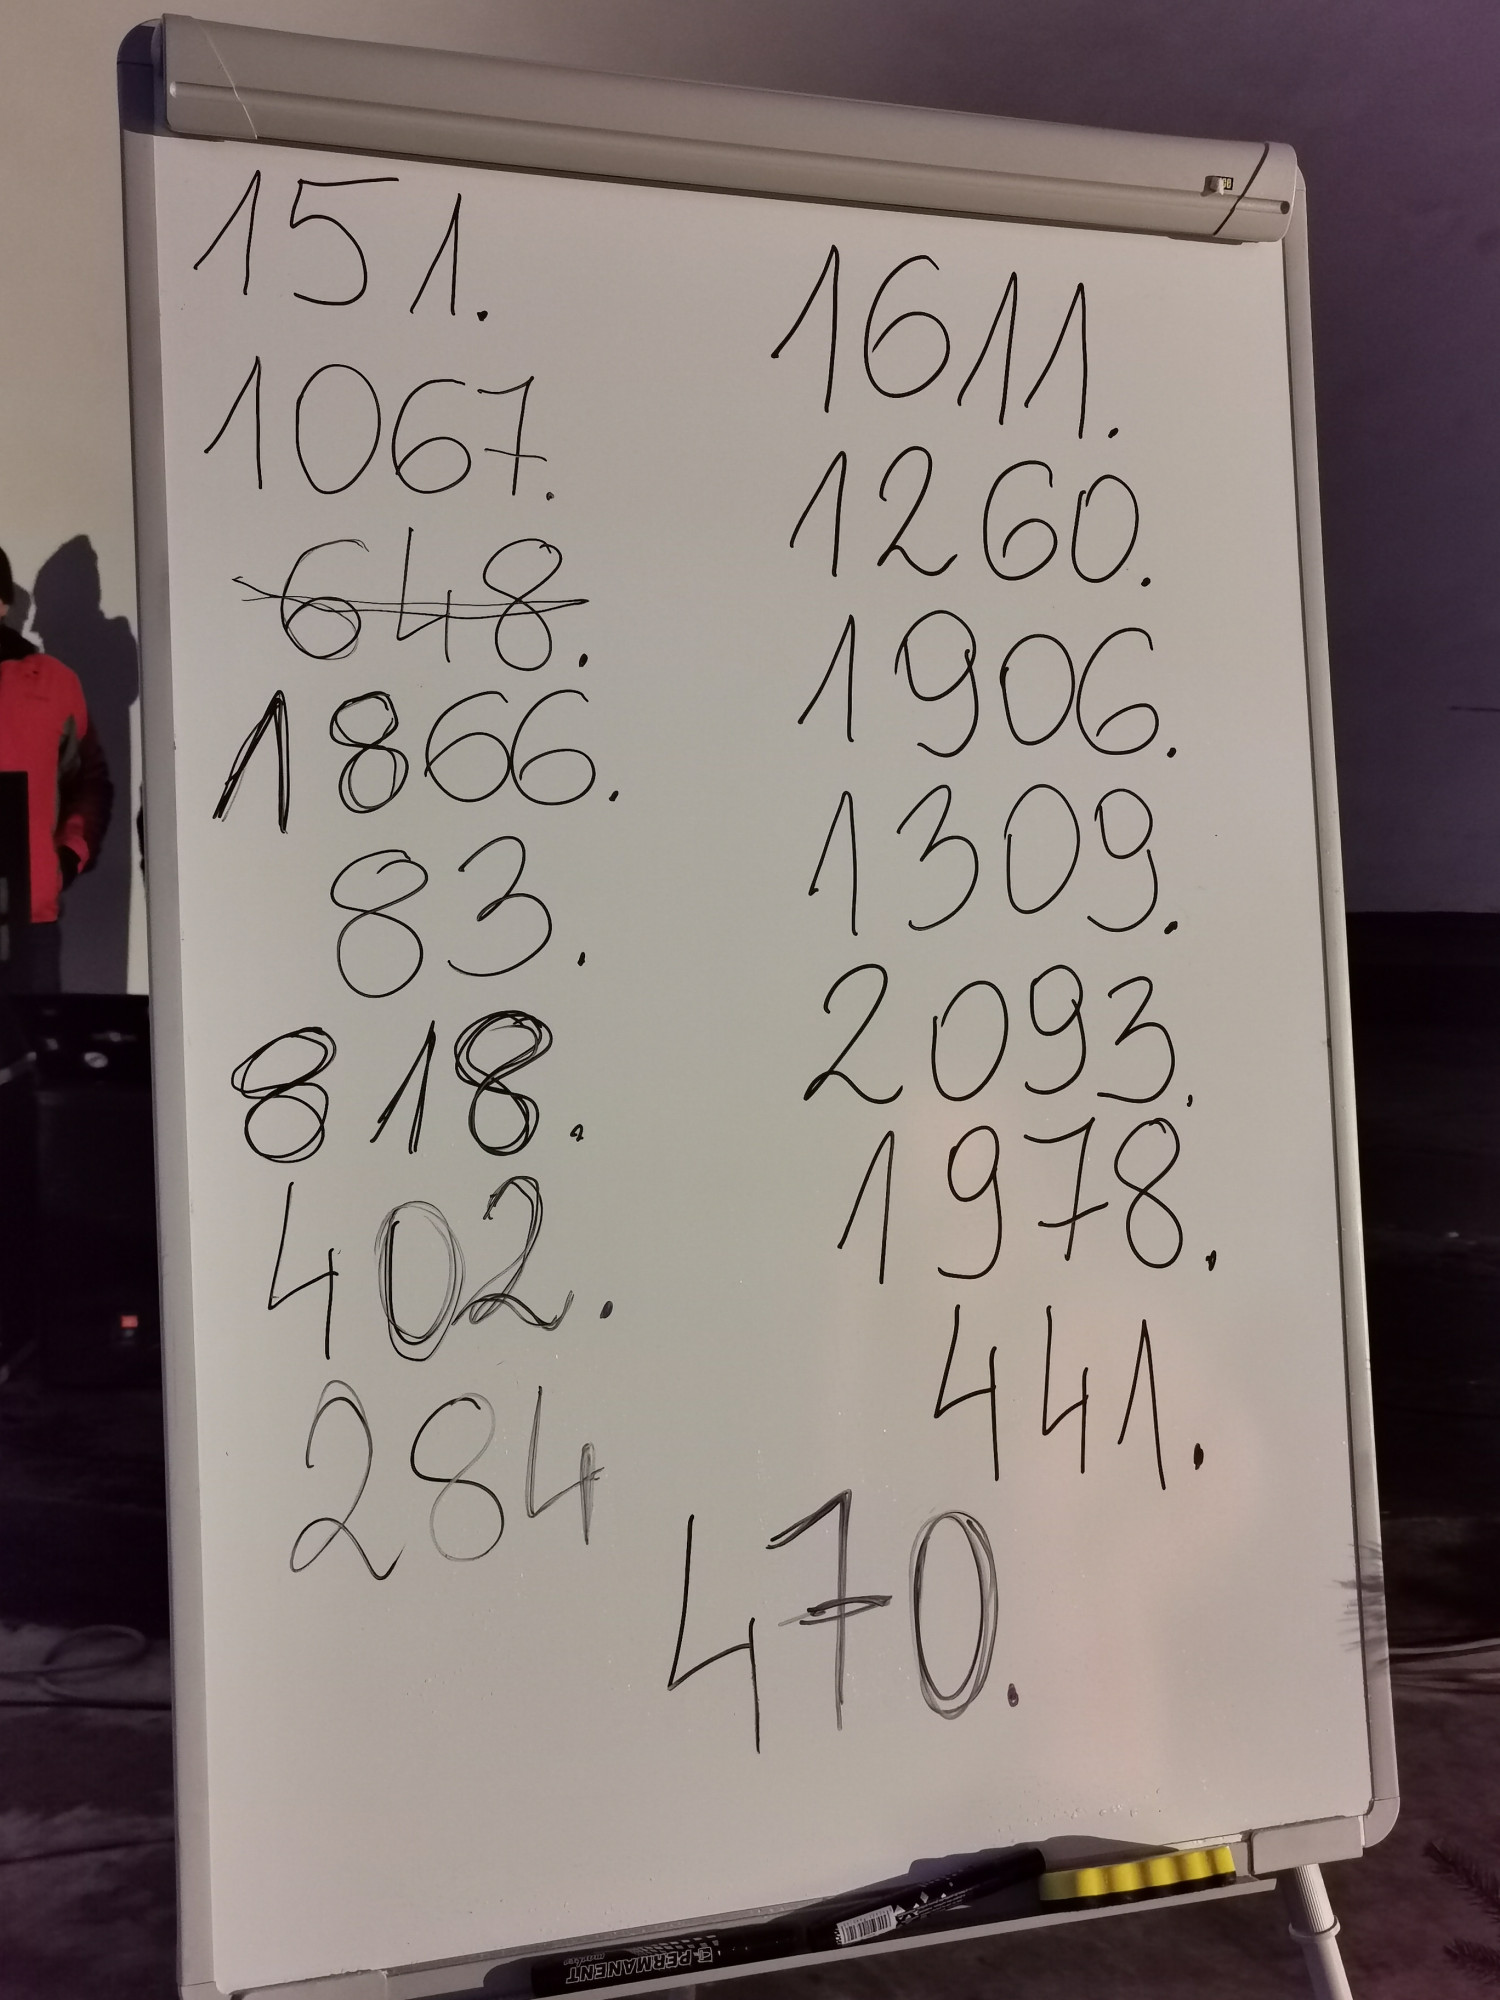 151.
1067.
648.
1866.
83.
818.
402.
284
1611.
1260.
1906.
1309.
2093.
1978.
441.
470.
PERMANENT
marker